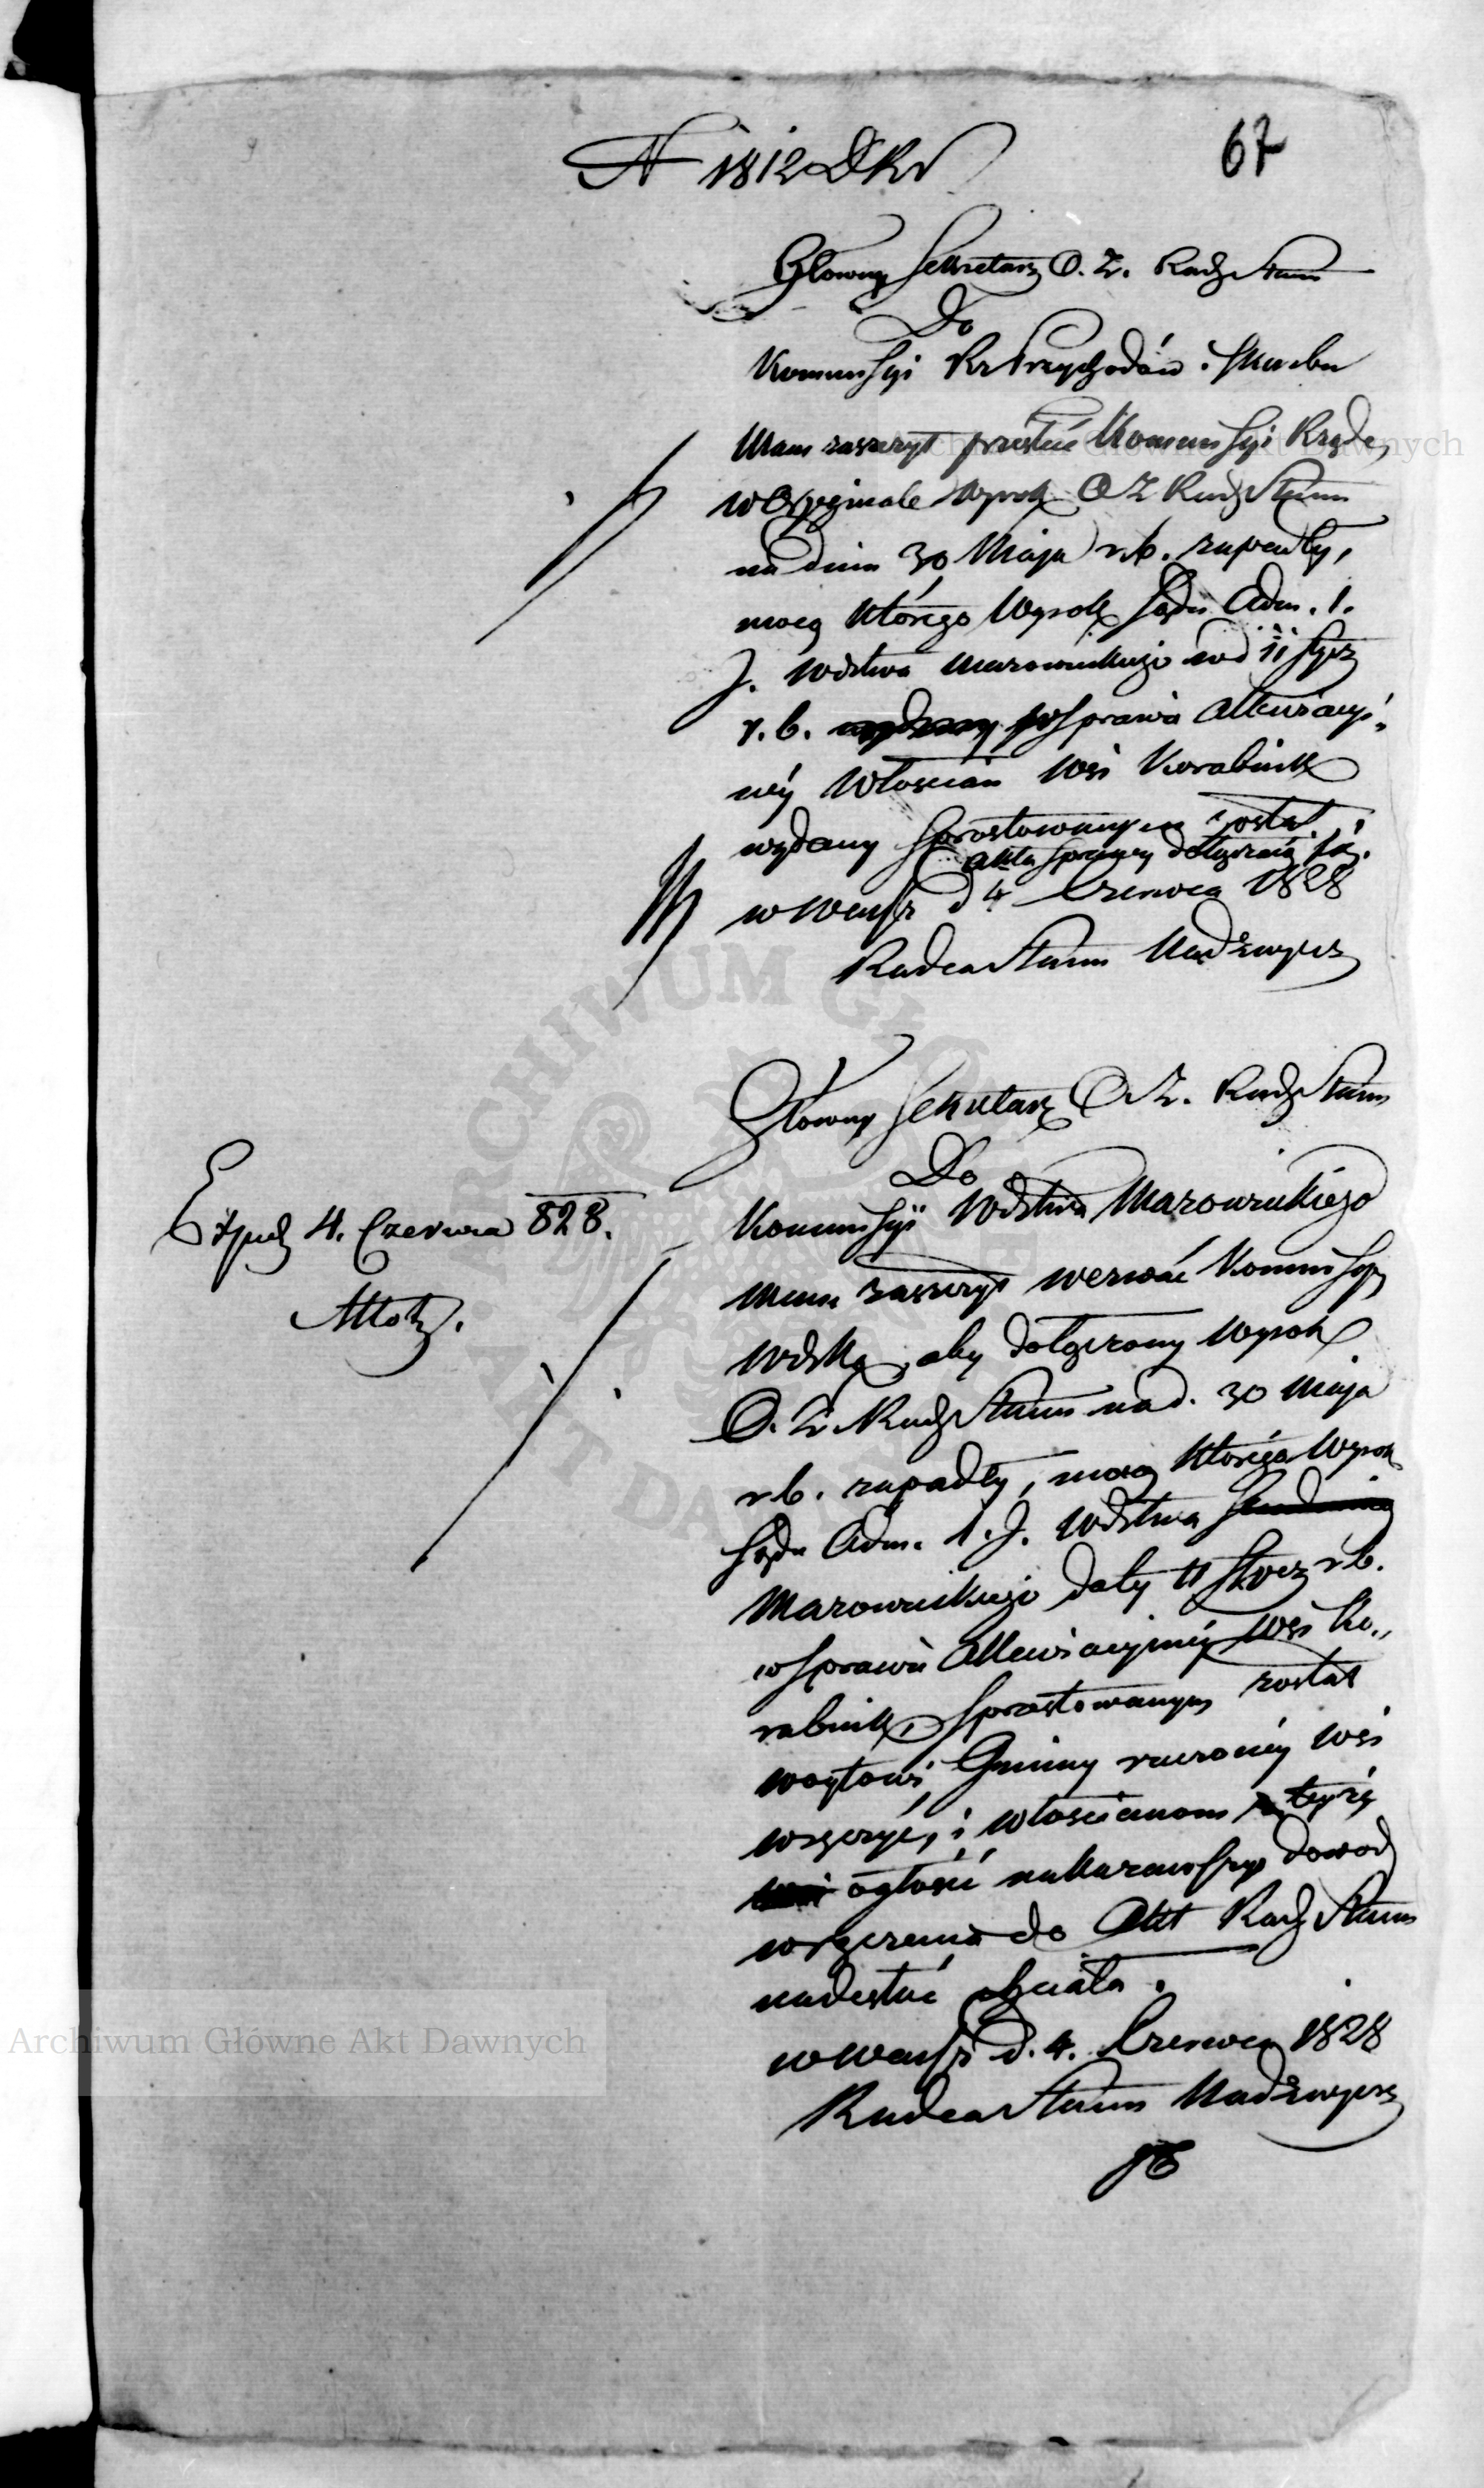 N 1812 DKW
67
Głowny Sekretarz O. Z. Rady Stanu
Do
Kommissyi Rz Przychodów i Skarbu
Mam zaszczyt przesłać Kommissyi Rządo,
w Oryginale Wyrok O Z Rady Stanu
na dniu 30 Maja r.b. zapadły,
mocą którego Wyrok Sądu Adm. 1.
J. Wdztwa Mazowieckiego z d 11 Stycz
r.b. w Sprawie Allewiacyi,
nėy Włościan Wsi Korabnik
wydany sprostowanym został i
akta sprawy dołączaią się.
w Warsz d 4 Czerwca 1828
Radca Stanu Nadzwycz
Główny Sekretarz O. Z. Rady Stanu
Do
Kommissyi Wdztwa Mazowieckiego
Exped 4. Czerwca 828.
Mam zaszczyt wezwać Kommissyą
Wdzką, aby dołączony Wyrok
O. Z. Rady Stanu na d. 30 Maja
r b. zapadły, mocą którego Wyrok
Sądu Adm. 1. J. Wdztwa
Mazowieckiego daty 11 Stycz r b.
w Sprawie Allewiacyinėy Wsi Ko,,
rabnik sprostowanym został
Woytowi Gminy rzeczonėy Wsi
wręczyć, i włościanom teyże
ogłosić nakazawszy dowod
wręczenia do Akt Rady Stanu
nadesłać chciała.
w Warsz d. 4. Czerwca 1828
Radca Stanu Nadzwycz
ARCHIWUM GŁÓWNE AKT DAWNYCH
Archiwum Główne Akt Dawnych
Archiwum Główne Akt Dawnych